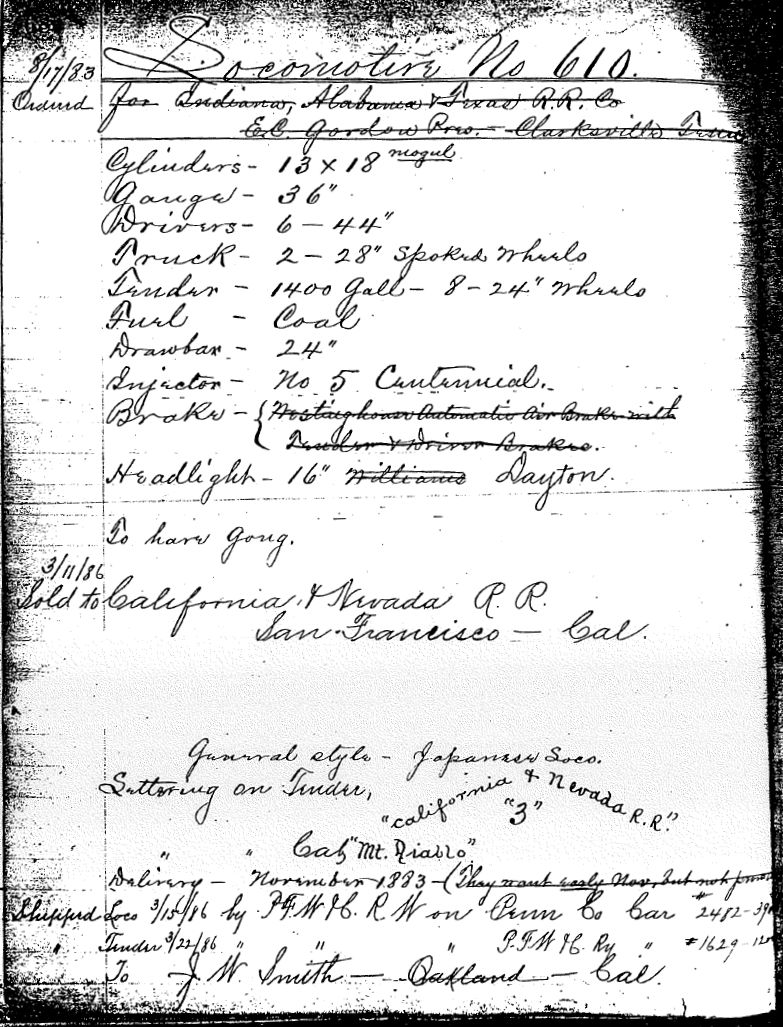 Locomotive No 610.
8/17/83
Ordered for Indiana, Alabama & Texas R.R. Co
E.C. Gordon Pres. - Clarksville Tenn
Cylinders - 13 x 18 mogul
Gauge - 36"
Drivers - 6 - 44"
Truck - 2 - 28" Spoked Wheels
Tender - 1400 Gall - 8 - 24" Wheels
Fuel - Coal
Drawbar - 24"
Injector - No 5 Centennial.
Brake - { Westinghouse Automatic Air Brake with
Tender & Driver Brakes.
Headlight - 16" Williams Dayton.
To have Gong.
3/11/86
Sold to California & Nevada R. R.
San Francisco - Cal.
General style - Japanese Loco.
Lettering on Tender, "California & Nevada R.R."
"3"
" " Cab "Mt. Diablo"
Delivery - November 1883 - (They want early Nov, but not
Shipped Loco 3/15/86 by P.F.W & C. R W on Penn Co Car #2482-
" Tender 3/22/86 " " " P.F.W & C. Ry " #1629-
To J. W. Smith - Oakland - Cal.